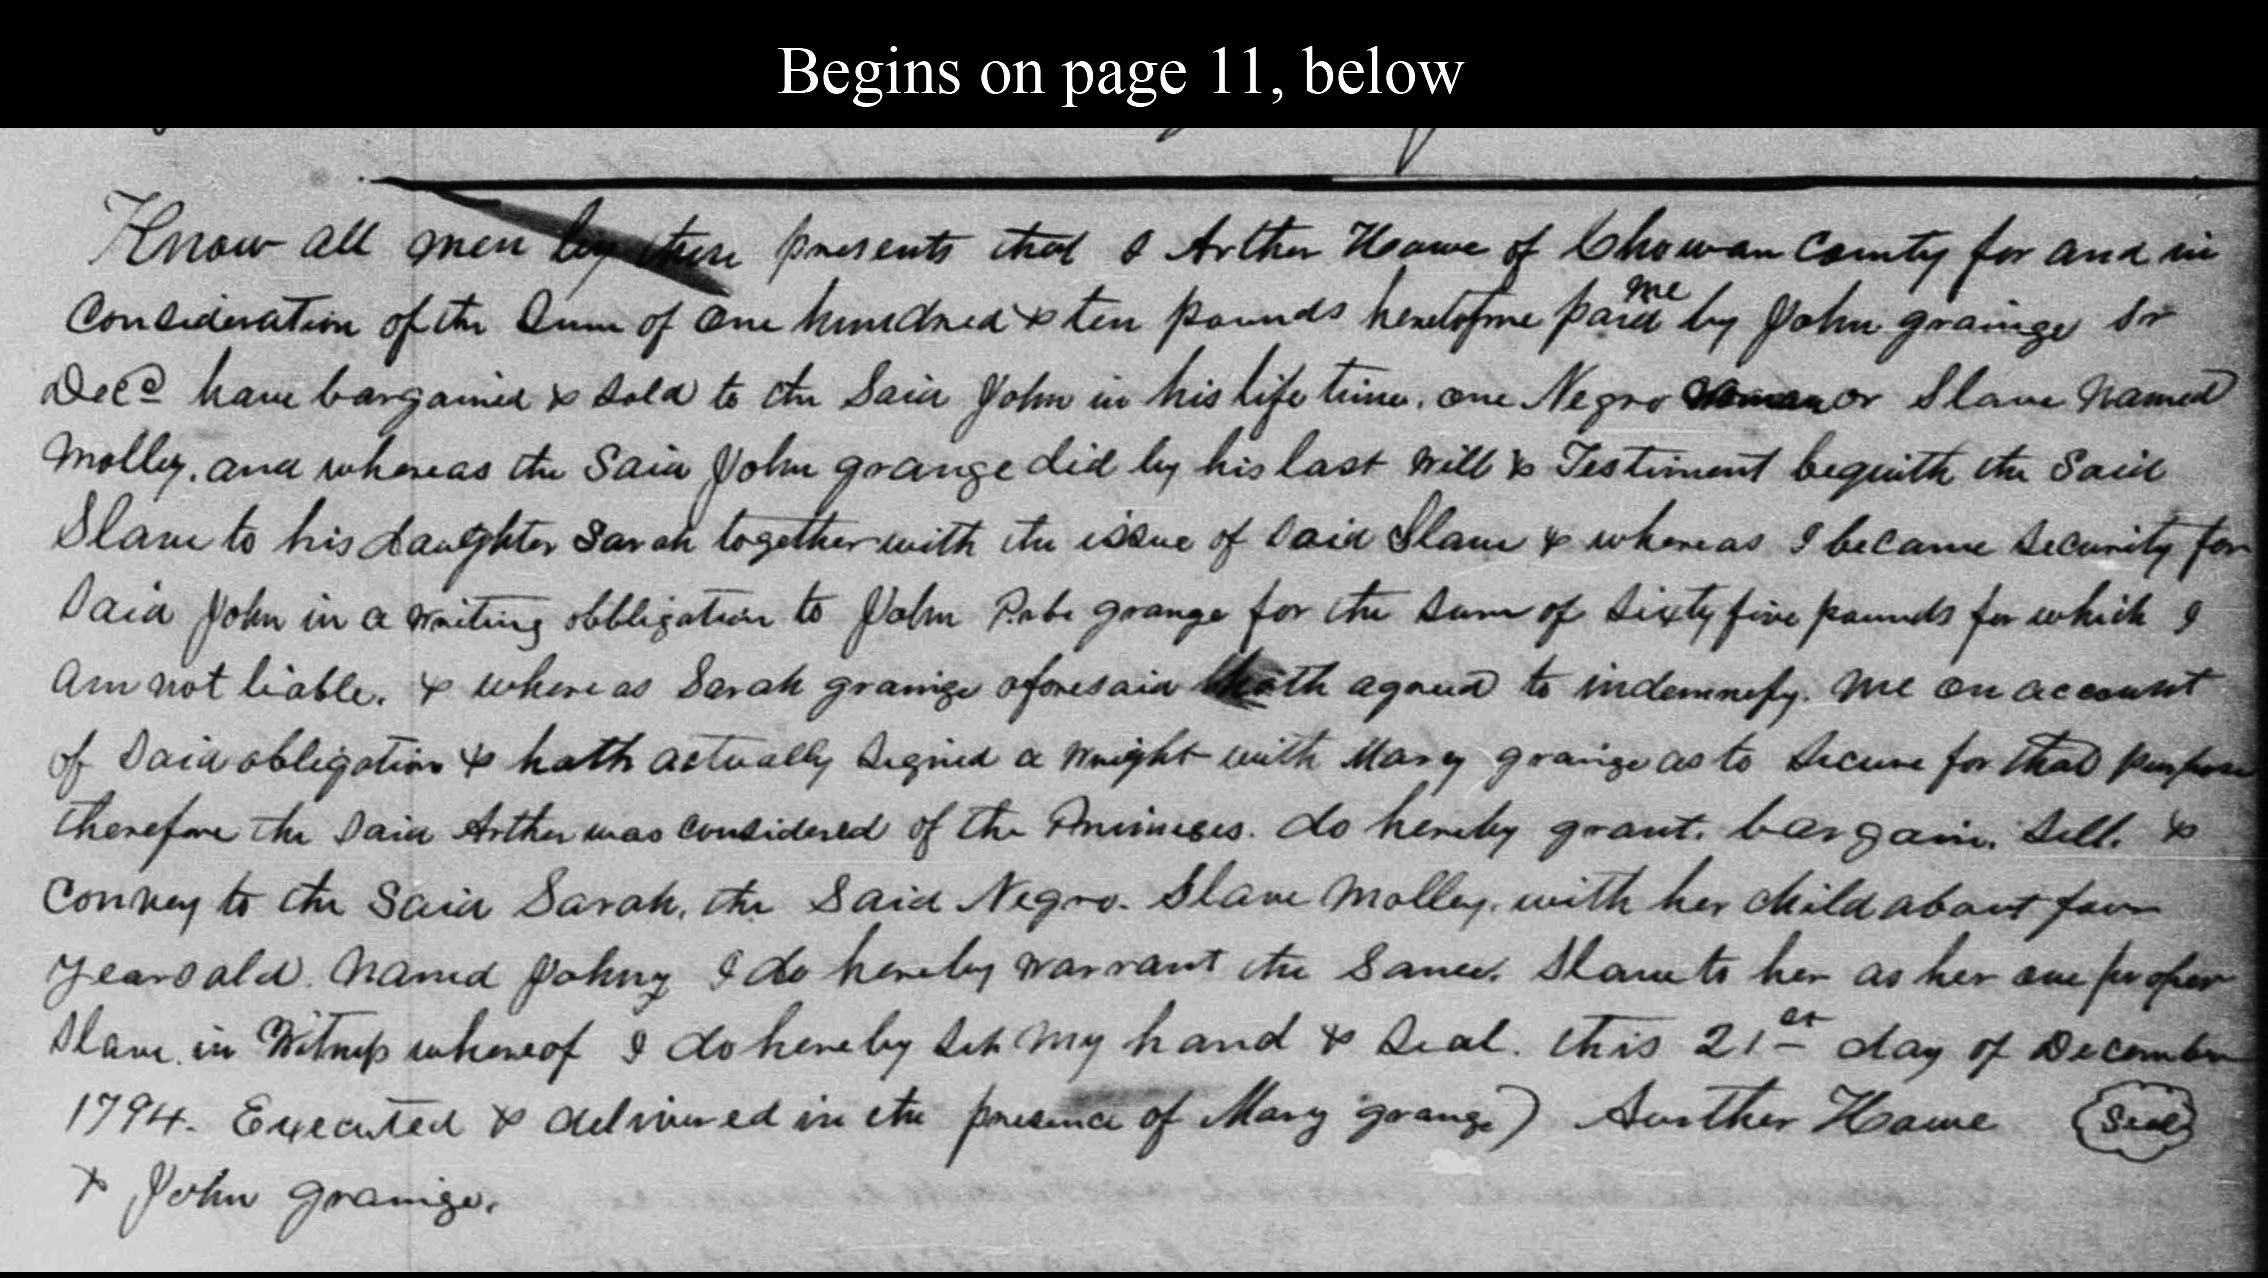 Begins on page 11, below
Know all men by these presents that I Arther Howe of Chowan County for and in
Consideration of the Sum of One hundred & ten pounds heretofore paid me by John grainge Sr
Decd have bargained & sold to the Said John in his life time. one Negro woman or Slave named
Molley. and whereas the Said John grange did by his last will & Testiment bequith the Said
Slave to his daughter Sarah together with the issue of Said Slave & whereas I became Security for
Said John in a writing obbligation to John grange for the Sum of Sixty five pounds for which I
am not liable. & whereas Sarah grainge aforesaid hath agreed to indemnefy. me on account
of Said obligation & hath actually Signed a with Mary grainge as to Secure for that purpose
therefore the Said Arther was considered of the Primises. do hereby grant. bargain. Sell. &
Convey to the Said Sarah. the Said Negro. Slave Molley. with her child about four
years old. named Johny I do hereby warrant the Same. Slave to her as her one proper
Slave. in Witness whereof I do hereby Set my hand & Seal. this 21st day of December
1794. Executed & delivered in the presence of Mary grange) Aurther Howe Seal
& John grainge.